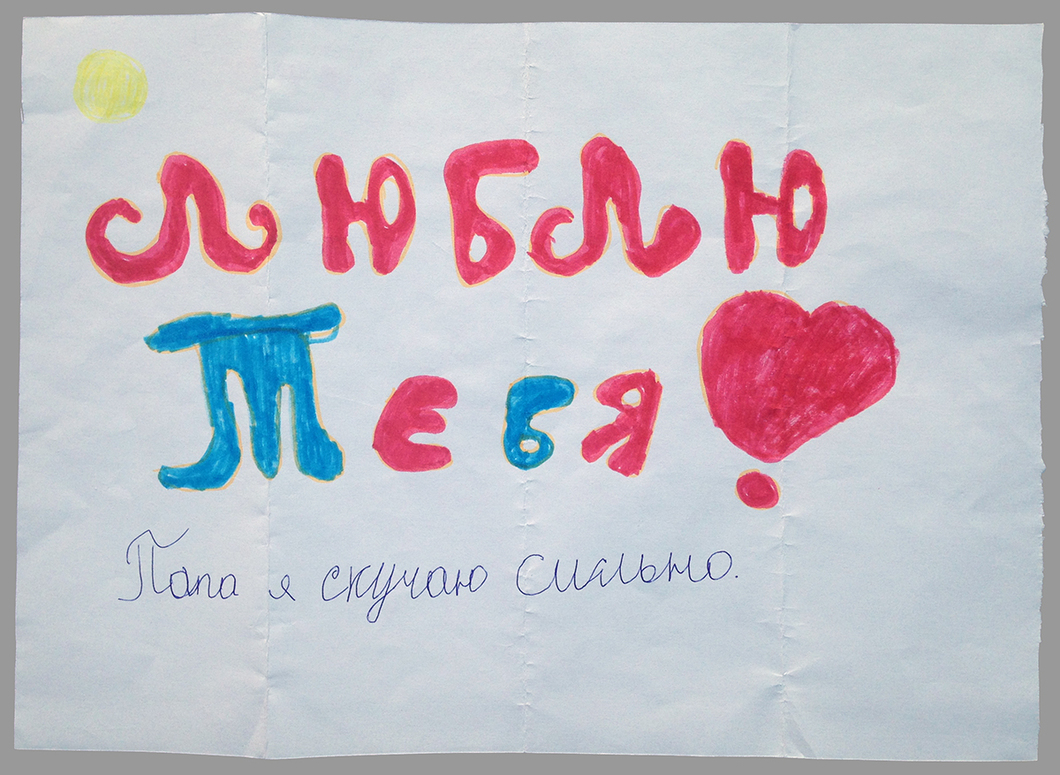 ЛЮБЛЮ
Тебя!
Папа я скучаю Сияльно.